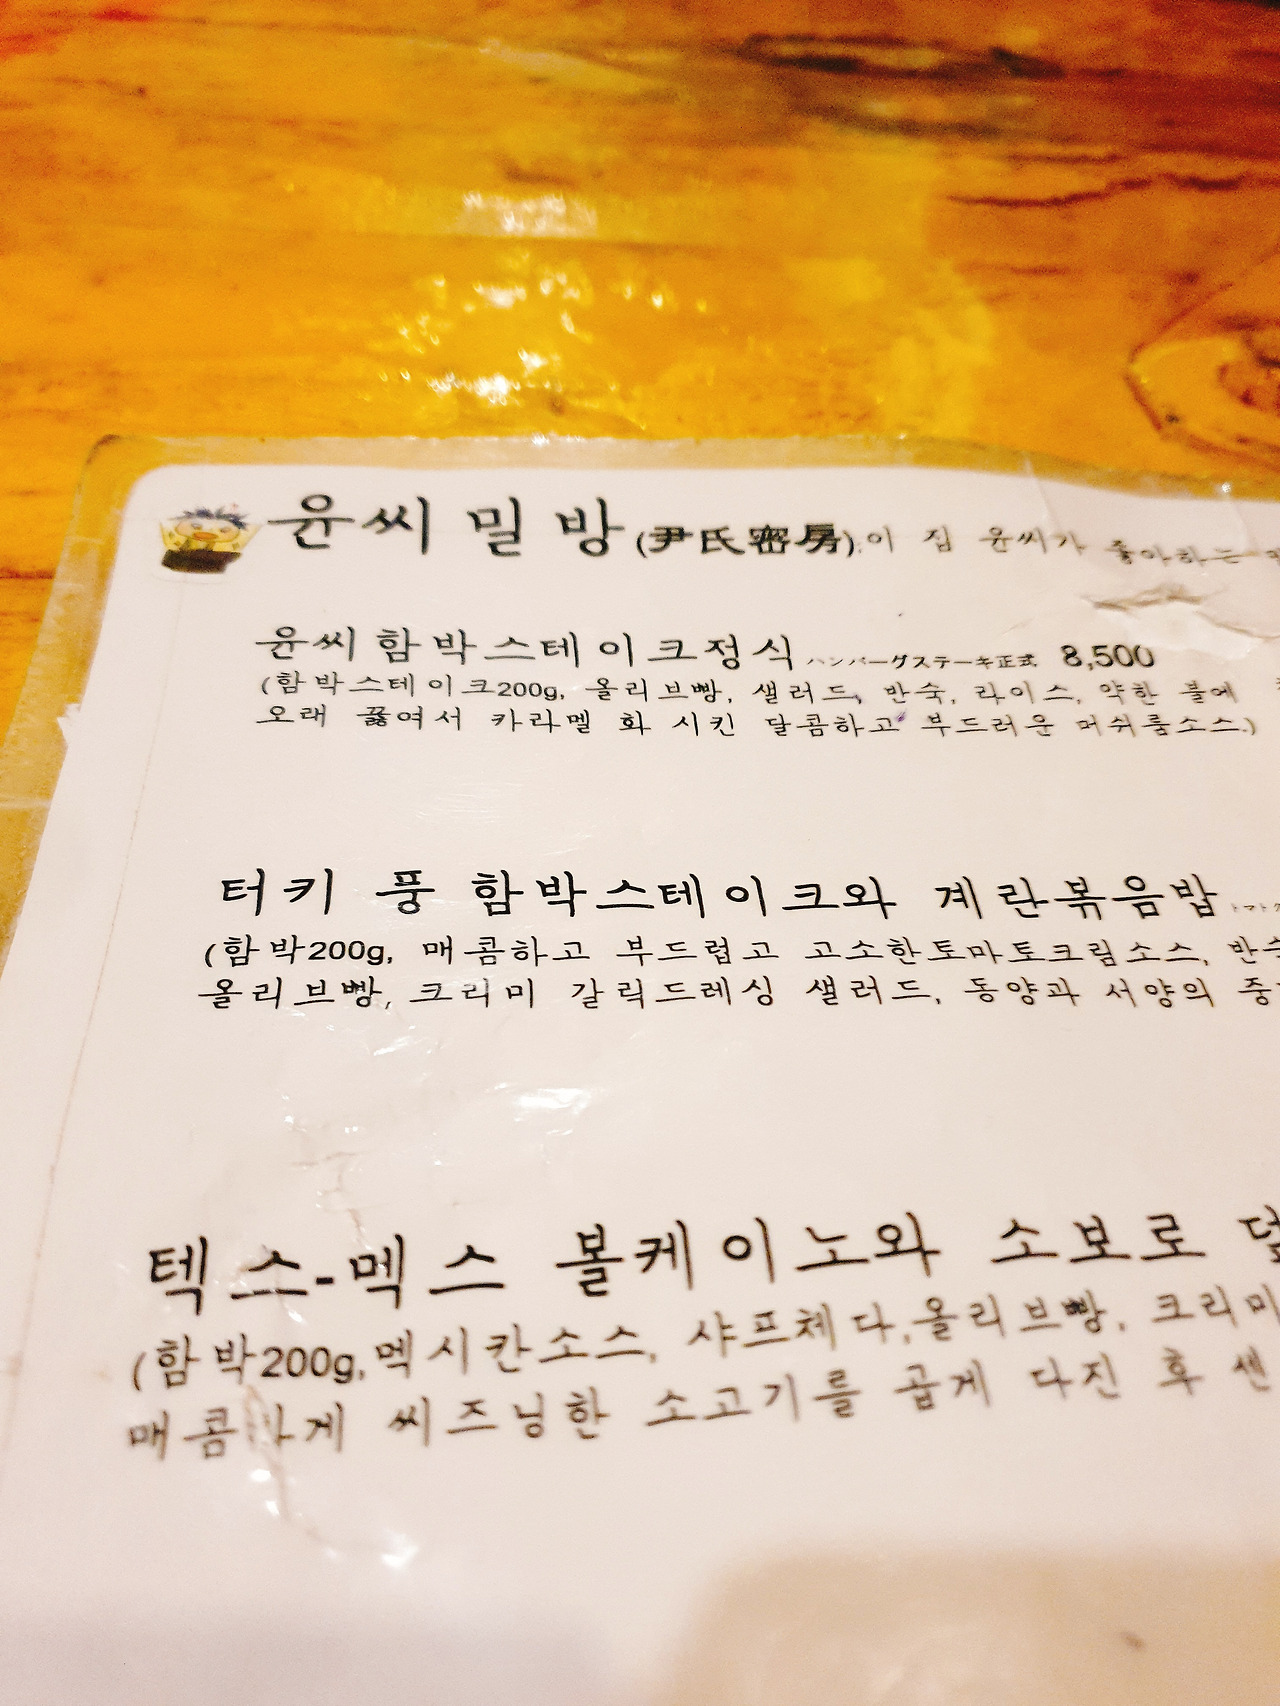 윤씨 밀방(尹氏密房).이 집 윤씨가 좋아하는
윤씨함박스테이크정식 ハンバーグステーキ正式 8,500
(함박스테이크200g, 올리브빵, 샐러드, 반숙, 라이스, 약한 불에
오래 끓여서 카라멜 화 시킨 달콤하고 부드러운 머쉬룸소스.)
터키 풍 함박스테이크와 계란볶음밥
(함박200g, 매콤하고 부드럽고 고소한토마토크림소스, 반숙
올리브빵, 크리미 갈릭드레싱 샐러드, 동양과 서양의 중
텍스-멕스 볼케이노와 소보로 덮
(함박200g,멕시칸소스, 샤프체다,올리브빵, 크리미
매콤하게 씨즈닝한 소고기를 곱게 다진 후 센